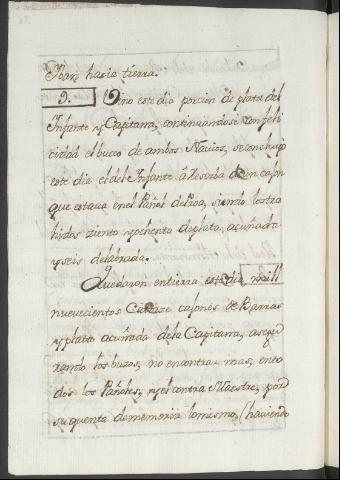 Iban hasia tierra.
9. Vino este dia porcion de plata del
Infante y Capitana, continuandose con feli
cidad el buceo de ambos Navios, se concluyò
este dia el del Infante à reserba de un cajon
que estava en el Pañol de Proa, siendo los tra
hidos ziento y ochenta de plata, acuñada
y seis de labrada.
Quedaron en tierra este dia mill
nuevecientos Catorze cajones de Barras
y plata acuñada de la Capitana, asegu
rando los buzos, no encontrar mas, en to
dos los Pañoles, y el contra Maestre, por
su quenta de memoria lo mismo, (haviendo